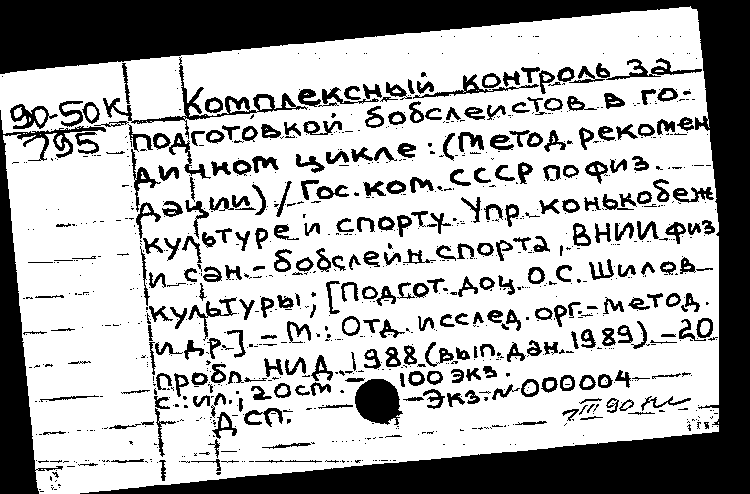 90-50К
795
Комплексный контроль за
подготовкой бобслеистов в го-
дичном цикле: (Метод. рекомен
дации) / Гос. ком. СССР по физ.
культуре и спорту. Упр. конькобеж
и сан.-бобслейн. спорта, ВНИИ физ.
культуры; [Подгот. доц. О.С. Шилов
и др.]. - М.: Отд. исслед. орг.-метод.
пробл. НИД, 1988 (вып. дан. 1989). - 20
с.: ил.; 20 см. - 100 экз.
- Экз. № 000004
ДСП.
III 90